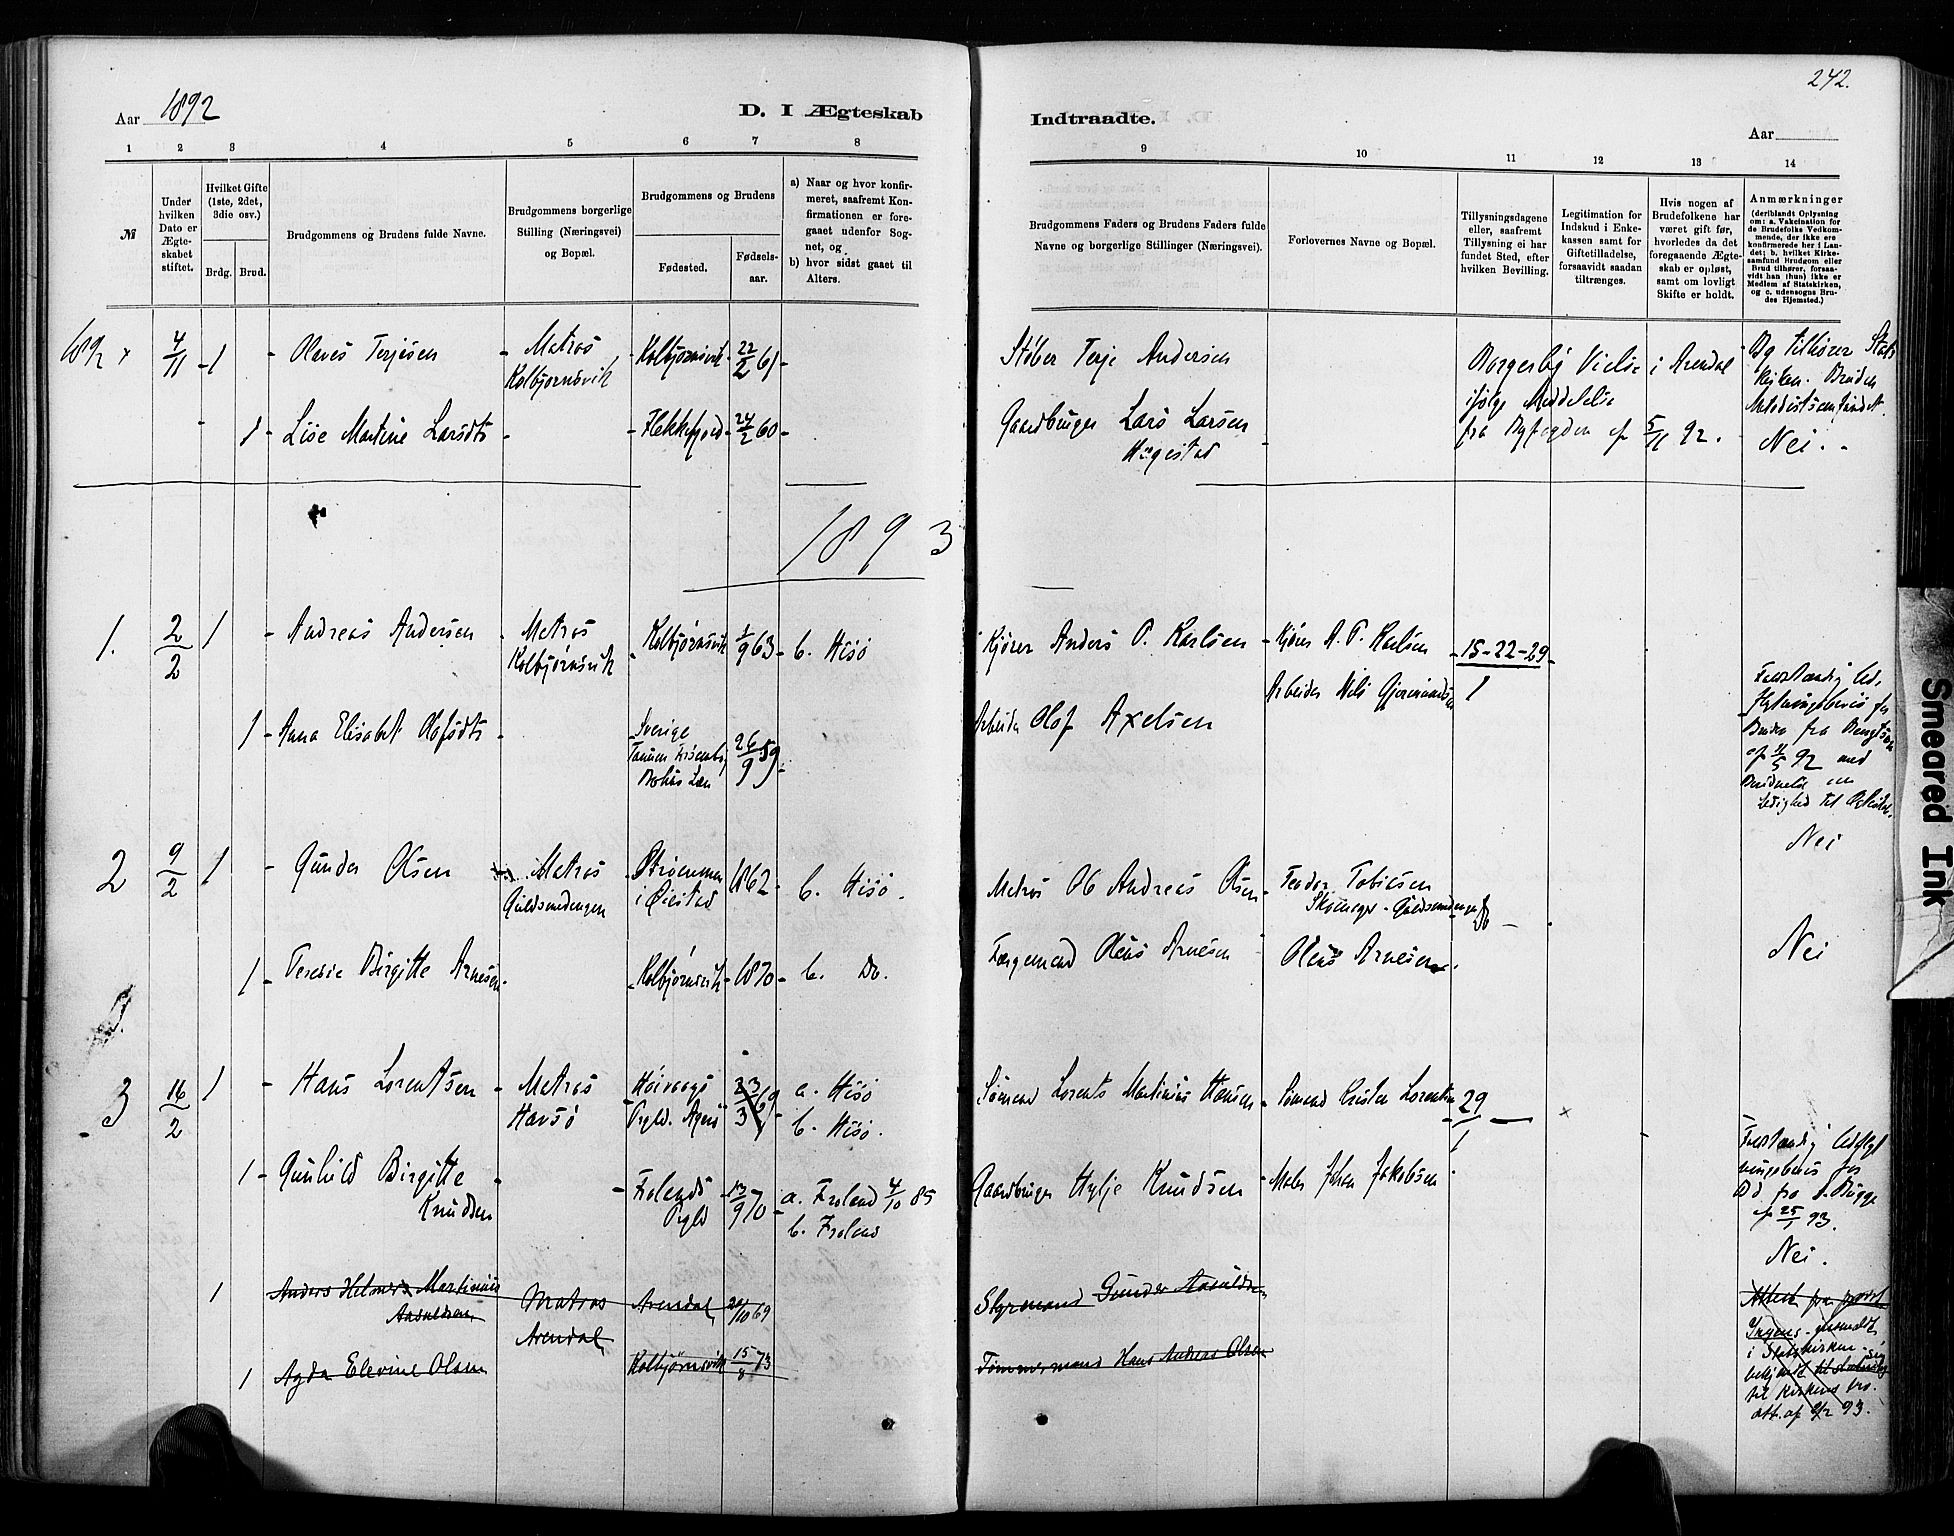 242.
Aar 1892
D. I Ægteskab
Indtraadte.
Aar
1 2 3 4 5 6 7 8
9 10 11 12 13 14
№
Under hvilken Dato er Ægteskabet stiftet.
Hvilket Gifte (1ste, 2det, 3die osv.)
Brdg. Brud.
Brudgommens og Brudens fulde Navne.
Brudgommens borgerlige Stilling (Næringsvei) og Bopæl.
Brudgommens og Brudens
Fødested.
Fødselsaar.
a) Naar og hvor konfirmeret, saafremt Konfirmationen er foregaaet udenfor Sognet, og
b) hvor sidst gaaet til Alters.
Brudgommens Faders og Brudens Faders fulde Navne og borgerlige Stillinger (Næringsvei).
Forlovernes Navne og Bopæl.
Tillysningsdagene eller, saafremt Tillysning ei har fundet Sted, efter hvilken Bevilling.
Legitimation for Indskud i Enkekassen samt for Giftetilladelse, forsaavidt saadan tiltrænges.
Hvis nogen af Brudefolkene har været gift før, hvorledes da det foregaaende Ægteskab er opløst, samt om lovligt Skifte er holdt.
Anmærkninger
(deriblandt Oplysning om: a. Vakcination for de Brudefolks Vedkommende, der ikke ere konfirmerede her i Landet; b. hvilket Kirkesamfund Brudgom eller Brud tilhører, forsaavidt han (hun) ikke er Medlem af Statskirken, og c. udensogns Brudes Hjemsted.)
4/11 1 Olaves Terjesen Matros Kolbjørnsvik Kolbjørnsvik 22/2 61
Støber Terje Andersen
Borgerlig Vielse i Arendal
ifølge Meddelelse
fra Byfogden af 5/11 92.
Bg tilhører Stats
kirken. Bruden
Metodistsamfundet.
1 Lise Martine Larsdtr Flekkefjord 24/2 60
Gaardbruger Lars Larsen
Hægestad
Nei.
1893
1. 2/2 1 Andreas Andersen Matros Kolbjørnsvik Kolbjørnsvik 1/9 63 b. Hisö
Kjører Anders P. Karlsen Kjører A. P. Karlsen 15-22-29
1
Arbeider Nils
1 Anna Elisabet Olofsdtr Sverige Tanum Bohus Len 26/9 59
Arbeider Olof Axelsen
Bruden fra
92 med
Ledighed til
Nei
2 9/2 1 Gunder Olsen Matros Guldsmedengen Strømmen i Øiestad 1862 b. Hisö.
Matros Ole Andreas Olsen Teodor Tobiesen
Guldsmedengen Do
1 Teresie Birgitte Arnesen Kolbjørnsvik 1870 b. Do.
Færgemand Olens Arnesen Olens Arnesen.
Nei
3 16/2 1 Hans Lorentsen Matros Havsö Høivaags Prgld. 23/3 69 a. Hisö
b. Hisö.
Sömand Lorents Martinius Hansen Sömand Lorentsen 29
1
1 Gunhild Birgitte Knudsen Frolands Prgld 13/9 70 a. Froland 4/10 85
b. Froland
Gaardbruger Hylje Knudsen Maler Johan Jakobsen
fra S. Bugge
af 25/1 93.
Nei.
1 Anders Helmer Martinius Aasuldsen Matros Arendal Arendal 20/10 69
Styrmand Gunder Aasuldsen
Attest fra
i Statskirken
til Kirkens
att. af 9/2 93.
1 Agda Elevine Olsen Kolbjørnsvik 15/8 73
Tømmermand Hans Andreas Olsen
Smeared Ink